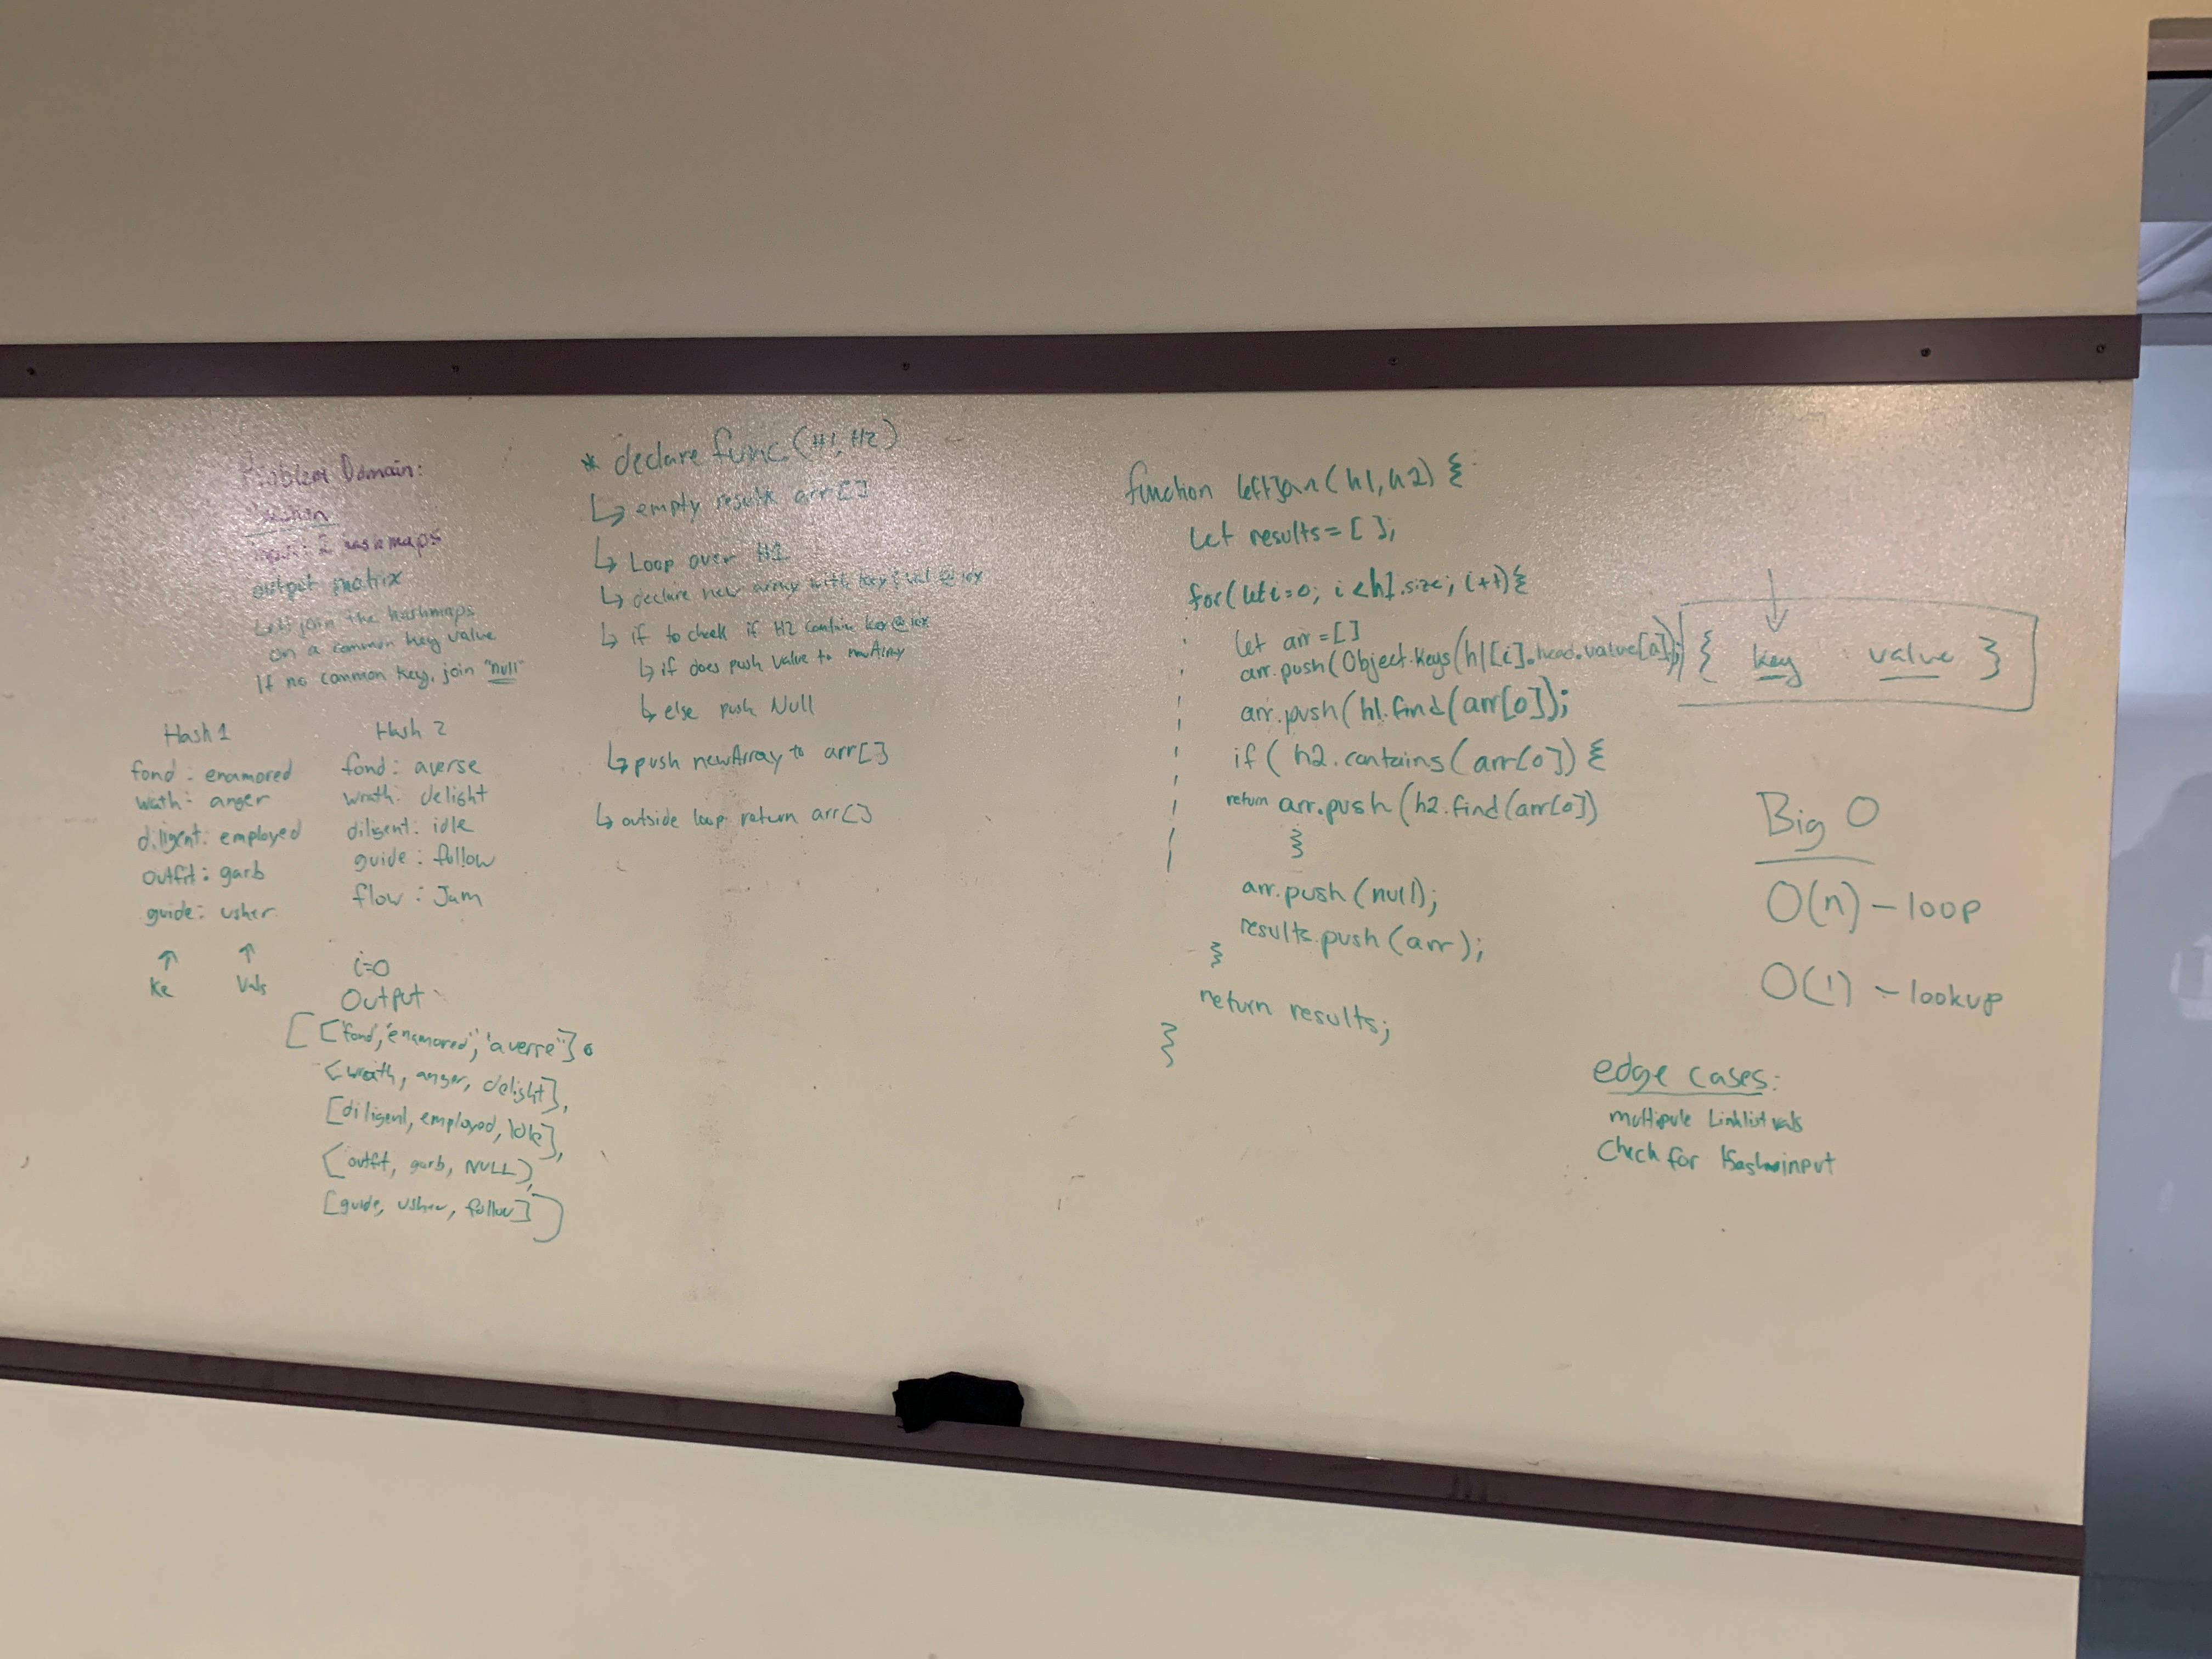 Problem Domain:
input: 2 hashmaps
output matrix
Left join the hashmaps
on a common key value
If no common key, join "null"
Hash 1
fond : enamored
wath: anger
diligent: employed
outfit: garb
guide: usher
↑ ↑
Ke Vals
Hash 2
fond: averse
wrath: delight
diligent: idle
guide: follow
flow: Jam
i=0
Output
[['fond','enamored','averse'],
[wrath, anger, delight],
[diligent, employed, Idle],
[outfit, garb, NULL],
[guide, usher, follow]]
* declare func(H1, H2)
↳ empty results arr[]
↳ Loop over H1
↳ declare new array with key & val @ idx
↳ if to check if H2 contain key @ idx
↳ if does push value to newArray
↳ else push Null
↳ push newArray to arr[]
↳ outside loop return arr[]
function leftJoin(h1, h2) {
let results = [];
for(let i=0; i<h1.size; i++){
let arr = []
arr.push(Object.keys(h1[i].head.value[0]);
arr.push(h1.find(arr[0]);
if (h2.contains(arr[0]) {
return arr.push(h2.find(arr[0])
}
arr.push(null);
results.push(arr);
}
return results;
}
{ key : value }
Big O
O(n) - loop
O(1) - lookup
edge cases:
multipule Linklist vals
Check for input